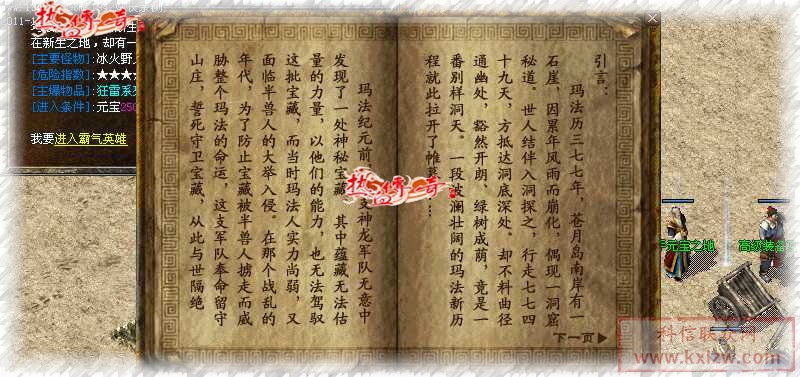 在新生之地，却有一
[主要怪物]：冰火野
[危险指数]：★★★
[主爆物品]：狂雷系列
[进入条件]：元宝250
我要进入霸气英雄
引言：
玛法历三七七年，苍月岛南岸有一
石崖，因累年风雨而崩化，偶现一洞窟
秘道。世人结伴入洞探之，行走七七四
十九天，方抵达洞底深处。却不料曲径
通幽处，豁然开朗、绿树成荫，竟是一
番别样洞天。一段波澜壮阔的玛法新历
程就此拉开了帷幕……
玛法纪元前，支神龙军队无意中
发现了一处神秘宝藏，其中蕴藏无法估
量的力量，以他们的能力，也无法驾驭
这批宝藏，而当时玛法人实力尚弱，又
面临半兽人的大举入侵。在那个战乱的
年代，为了防止宝藏被半兽人掳走而威
胁整个玛法的命运，这支军队奉命留守
山庄，誓死守卫宝藏，从此与世隔绝
下一页
热血传奇
热血传奇
元宝之地
高级装备
科信联众网
www.kxlzw.com